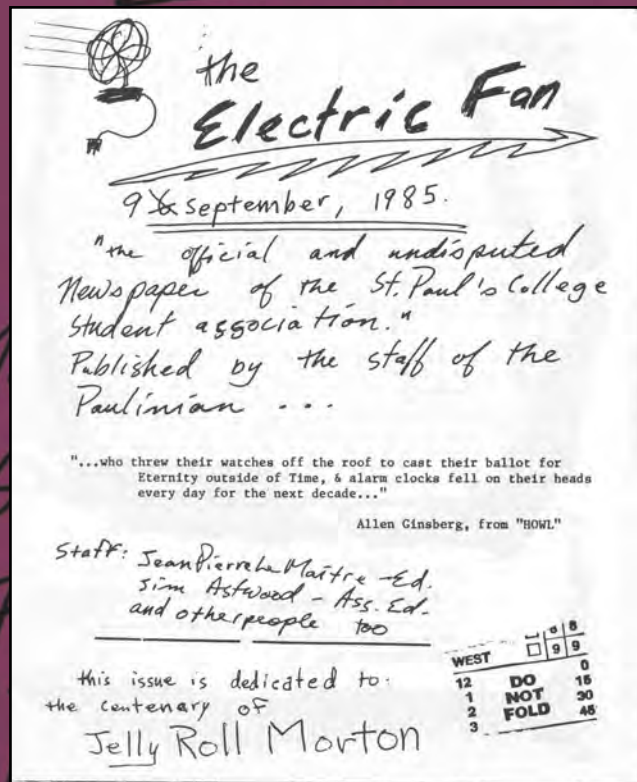 the
Electric Fan
9 september, 1985.
"the official and undisputed
Newspaper of the St. Paul's College
student association."
Published by the staff of the
Paulinian ...
"...who threw their watches off the roof to cast their ballot for
Eternity outside of Time, & alarm clocks fell on their heads
every day for the next decade..."
Allen Ginsberg, from "HOWL"
Staff: Jean Pierre Le Maître - Ed.
Jim Astwood - Ass. Ed.
and other people too
this issue is dedicated to:
the centenary of
Jelly Roll Morton
8
9 9
WEST 0
12 DO 15
1 NOT 30
2 FOLD 45
3